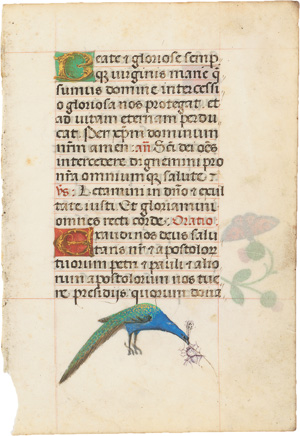 Beate & gloriose semp
q̃ virginis marie q̃
sumus domine intercessi
o gloriosa nos protegat. et
ad vitam eternam perdu
cat. Per xp̃m dominum
nr̃m amen. añ. Sc̃i dei oẽs
intercedere dignemini pro
nr̃a omnium q̃ salute &
vs. Letamini in dño & exul
tate iusti. Et gloriamini
omnes recti corde. Oratio
Exaudi nos deus salu
taris nr̃ & apostolor
tuorum petri & pauli & alio
rum apostolorum nos tue
re presidijs quorum dona